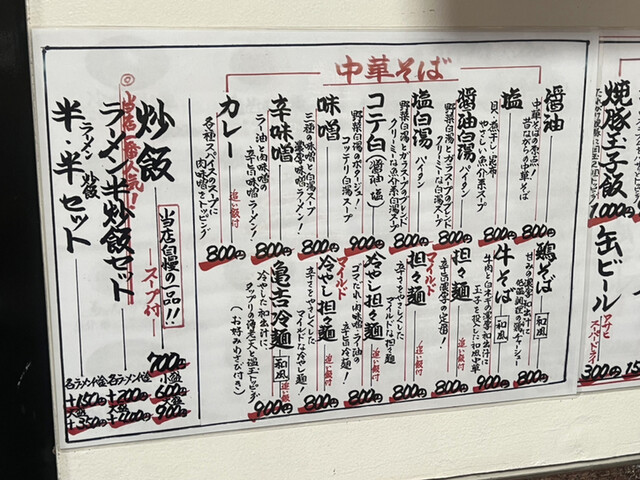 中華そば
醤油
中華そばの原点
昔ながらの中華そば
800円
塩
貝・煮干し・昆布
やさしい魚介系スープ
800円
醤油白湯
パイタン
野菜白湯とガラスープのブレンド
クリーミーな白湯スープ
800円
塩白湯
パイタン
野菜白湯とガラスープのブレンド
クリーミーな白湯スープ
800円
コテ白(醤油・塩)
野菜白湯のポタージュ!
コッテリ白湯スープ
900円
味噌
三種の味噌と白湯スープ
濃厚味噌ラーメン!
800円
辛味噌
ラー油と肉味噌の
辛旨味噌ラーメン!
800円
カレー
追い飯付
各種スパイスのスープに
肉味噌をトッピング
800円
鶏そば
和風
800円
牛そば
和風
900円
担々麺
追い飯付
800円
マイルド
担々麺
追い飯付
辛さをやさしくした
マイルドな担々麺
800円
冷やし担々麺
ゴマだれ肉味噌ラー油の
辛旨冷麺!
800円
マイルド
冷やし担々麺
追い飯付
辛さをやさしくした
マイルドな冷やし麺!
800円
亀吉冷麺
和風
追い飯付
冷やした和出汁に
タップリの海老天と温玉トッピング
(おすみわさび付き)
900円
炒飯
当店自慢の一品!!
スープ付
700円
小盛
600円
大盛
900円
◎当店一番人気!!
ラーメン半炒飯セット
各ラーメン代金
+300円
大盛
+400円
ラーメン 炒飯
半・半セット
各ラーメン代金
+150円
大盛
+350円
焼豚玉子飯
1,000円
缶ビール
アサヒ
スーパードライ
300円